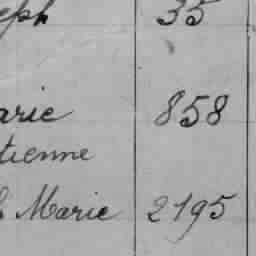 eph 35
arie 858
tienne
Marie 2195